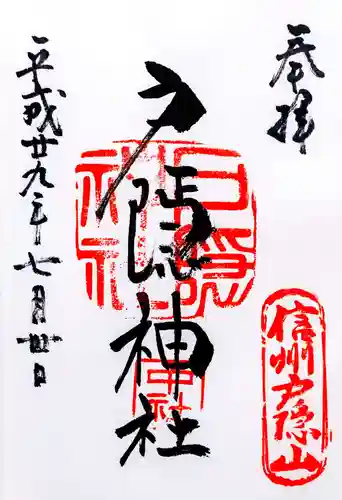 奉拝
信州戸隠山
戸隠神社
戸隠
神社
中社
平成廿九年七月廿日